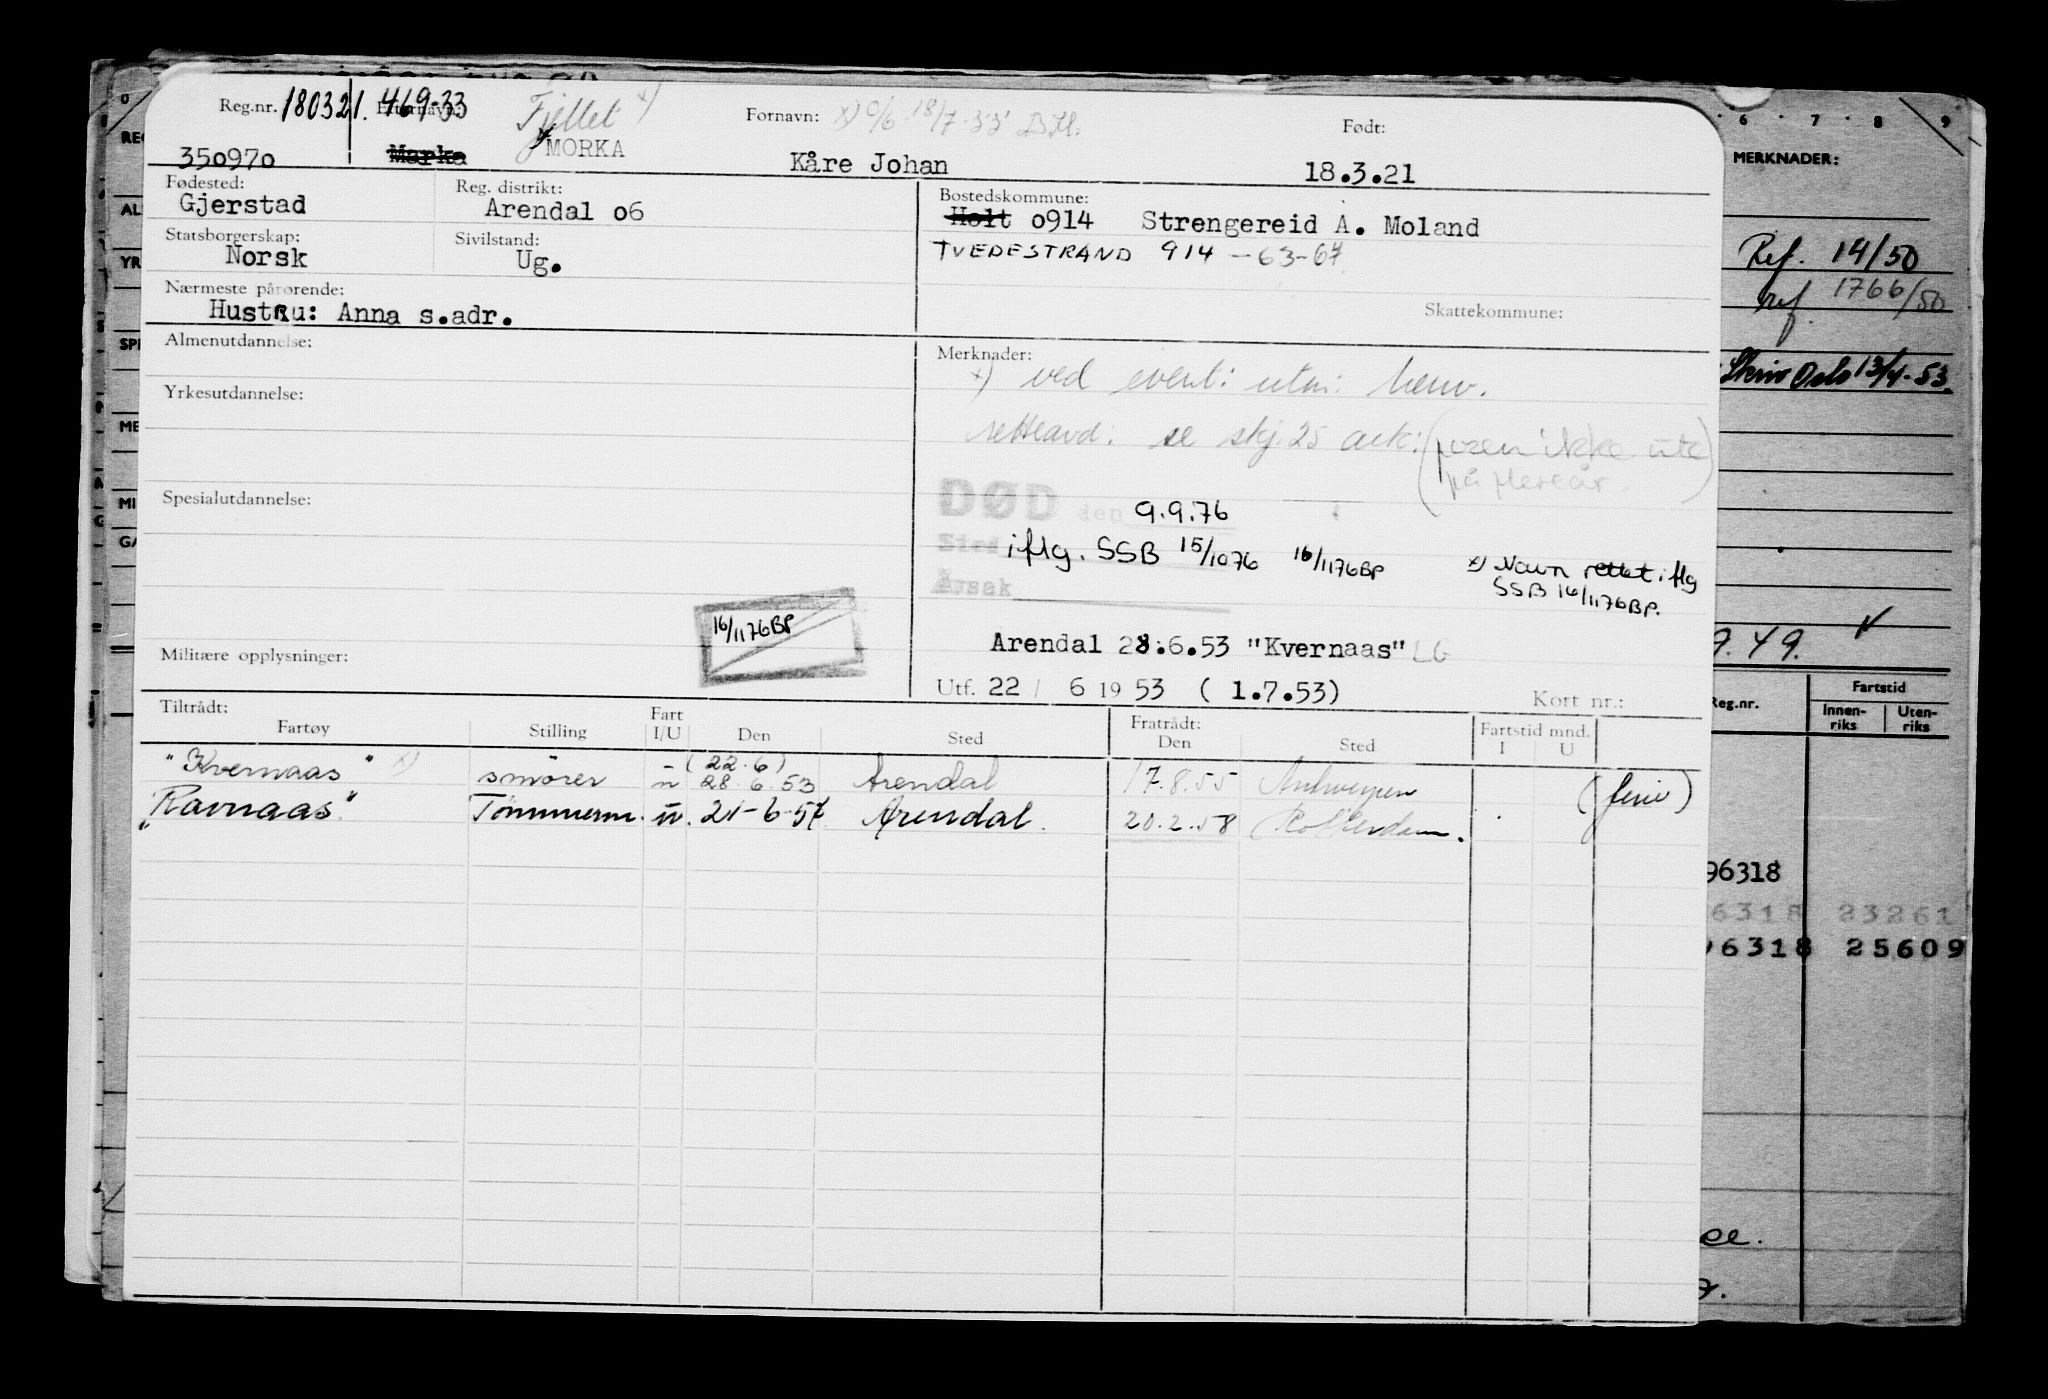 Reg.nr. 180321. 469-33 Etternavn: Fjellet x) Fornavn: x) 0/6 18/7-33 Født:
350970 Marka MORKA Kåre Johan 18.3.21
Fødested: Reg. distrikt: Bostedskommune:
Gjerstad Arendal o6 Holt o914 Strengereid A. Moland
Statsborgerskap: Sivilstand: TVEDESTRAND 914 - 63-67
Norsk Ug.
Nærmeste pårørende:
Hustru: Anna s.adr. Skattekommune:
Almenutdannelse: Merknader:
x) ved event: utm: henv.
Yrkesutdannelse:
setteavd: se skj. 25 ark: ( ikke ute
på flere år. )
Spesialutdannelse:
DØD den 9.9.76
Sted iflg. SSB 15/1076 16/1176BP x) Navn rettet iflg
SSB 16/1176BP.
Årsak
16/1176BP
Arendal 28.6.53 "Kvernaas" LG
Militære opplysninger:
Utf. 22 / 6 19 53 ( 1.7.53) Kort nr.:
Tiltrådt: Fratrådt: Fartstid mnd.
Fartøy Stilling Fart I/U Den Sted Den Sted I U
"Kvernaas" x) smører u (22.6) 28.6.53 Arendal 17.8.55 Antwerpen (ferie)
"Ravnaas" Tømmerm. u. 21-6-57 Arendal. 20.2.58 Rotterdam.
6 7 8 9
MERKNADER:
Ref. 14/50
ref 1766/50
Skriv Oslo 13/4-53.
9.49.
Reg.nr. Fartstid
Innen-riks Uten-riks
96318
6318 23261
96318 25609